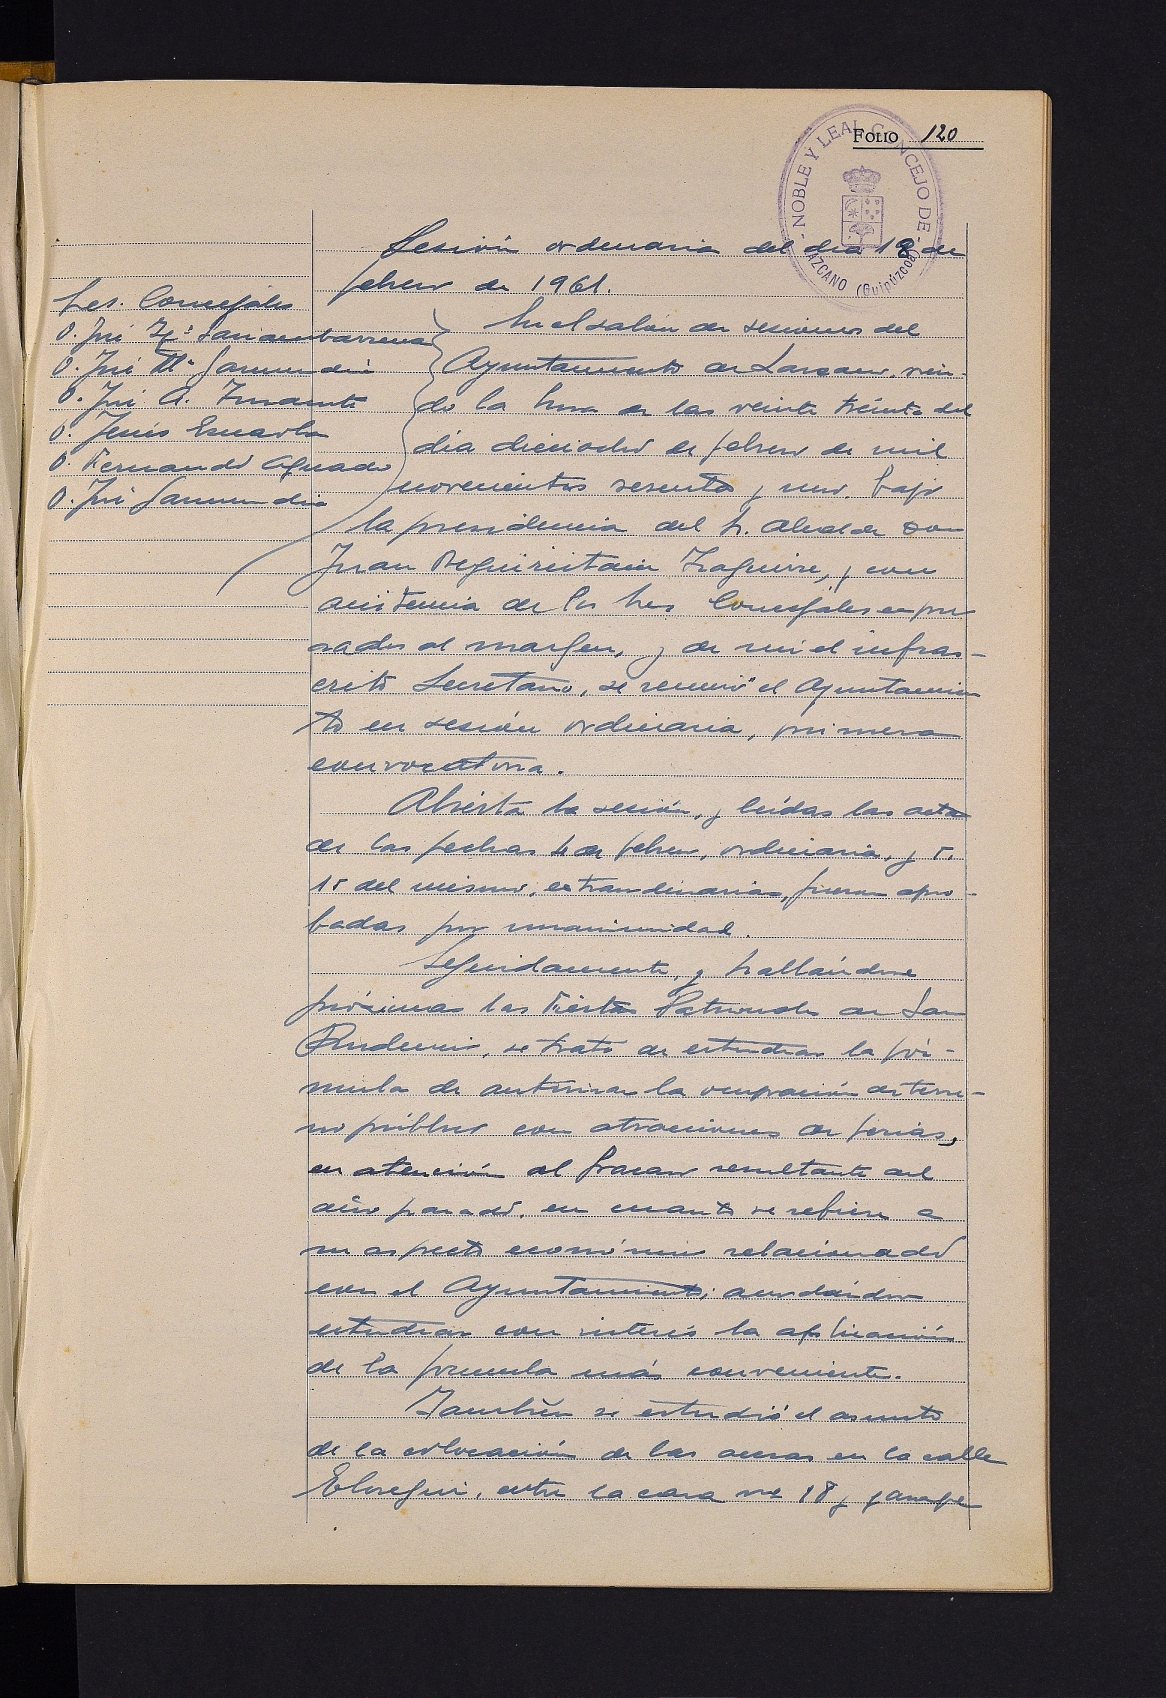 FOLIO 120
- NOBLE Y LEAL CONCEJO DE - LAZCANO (Guipúzcoa)
Sesión ordinaria del día 18 de
febrero de 1961.
Sres. Concejales
D. José Mª Sarriambarrena
D. José Mª Garmendia
D. José A. Insausti
D. Jesús Escarda
D. Fernando Aguado
D. José Garmendia
En el salón de sesiones del
Ayuntamiento de Lazcano, sien-
do la hora de las veinte treinta del
día dieciocho de febrero de mil
novecientos sesenta y uno. bajo
la presidencia del Sr. Alcalde Don
Juan Reguiristain Izaguirre, y con
asistencia de los Sres Concejales expre
sados al margen, y de mi el infras-
crito Secretario, se reunió el Ayuntamien
to en sesión ordinaria, primera
convocatoria.
Abierta la sesión, y leídas las actas
de las fechas 4 de febrero, ordinaria, y 5.
15 del mismo, extraordinarias, fueron apro-
badas por unanimidad.
Seguidamente, y hallándose
próximas las Fiestas Patronales de San
Prudencio, se trató de estudiar la fór-
mula de autorizar la ocupación de terre-
no público con atracciones de ferias,
en atención al fracaso resultante del
año pasado, en cuanto se refiere a
su aspecto económico relacionado
con el Ayuntamiento; acordándose
estudiar con interés la aplicación
de la fórmula más conveniente.
También se estudió el asunto
de la colocación de las aceras en la calle
Elosegui, entre la casa nº 18 y garaje